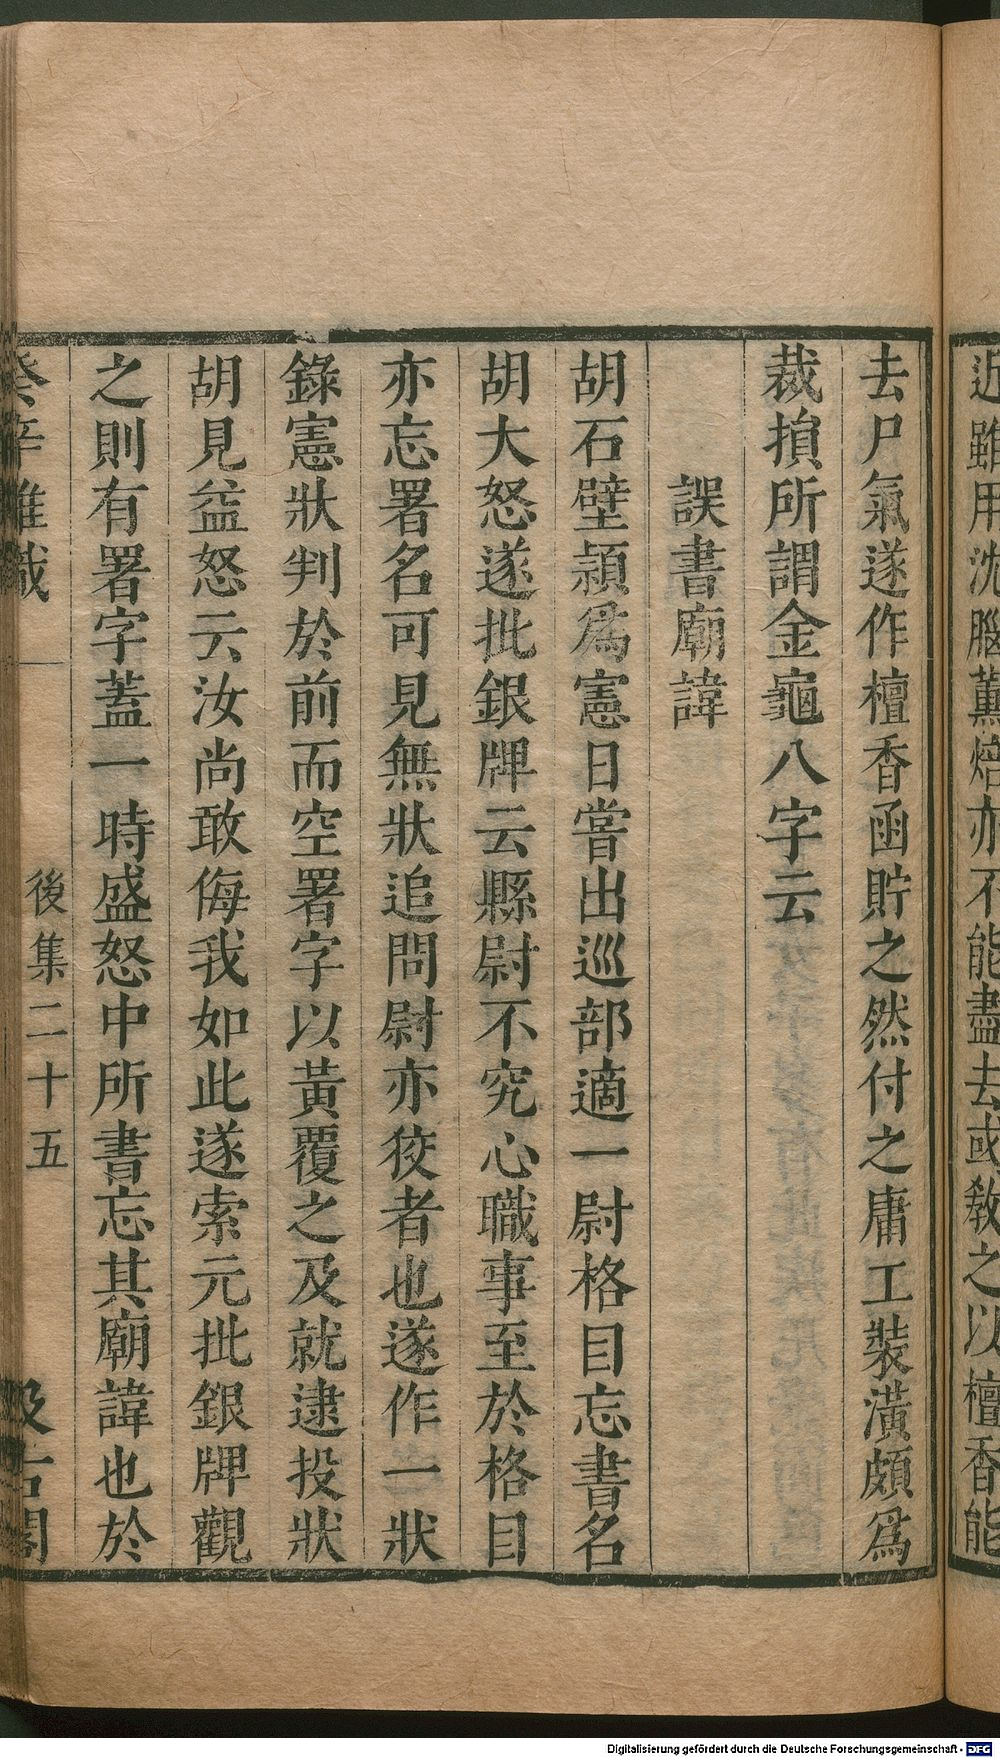 近雖用沈腦薰焙亦不能盡去或敎之以檀香能
去尸氣遂作檀香函貯之然付之庸工裝潢頗爲
裁損所謂金龜八字云
誤書廟諱
胡石壁頴爲憲日嘗出巡部適一尉格目忘書名
胡大怒遂批銀牌云縣尉不究心職事至於格目
亦忘署名可見無狀追問尉亦狡者也遂作一狀
錄憲狀判於前而空署字以黃覆之及就逮投狀
胡見益怒云汝尚敢侮我如此遂索元批銀牌觀
之則有署字蓋一時盛怒中所書忘其廟諱也於
癸辛雜識 後集二十五 汲古閣
Digitalisierung gefördert durch die Deutsche Forschungsgemeinschaft - DFG